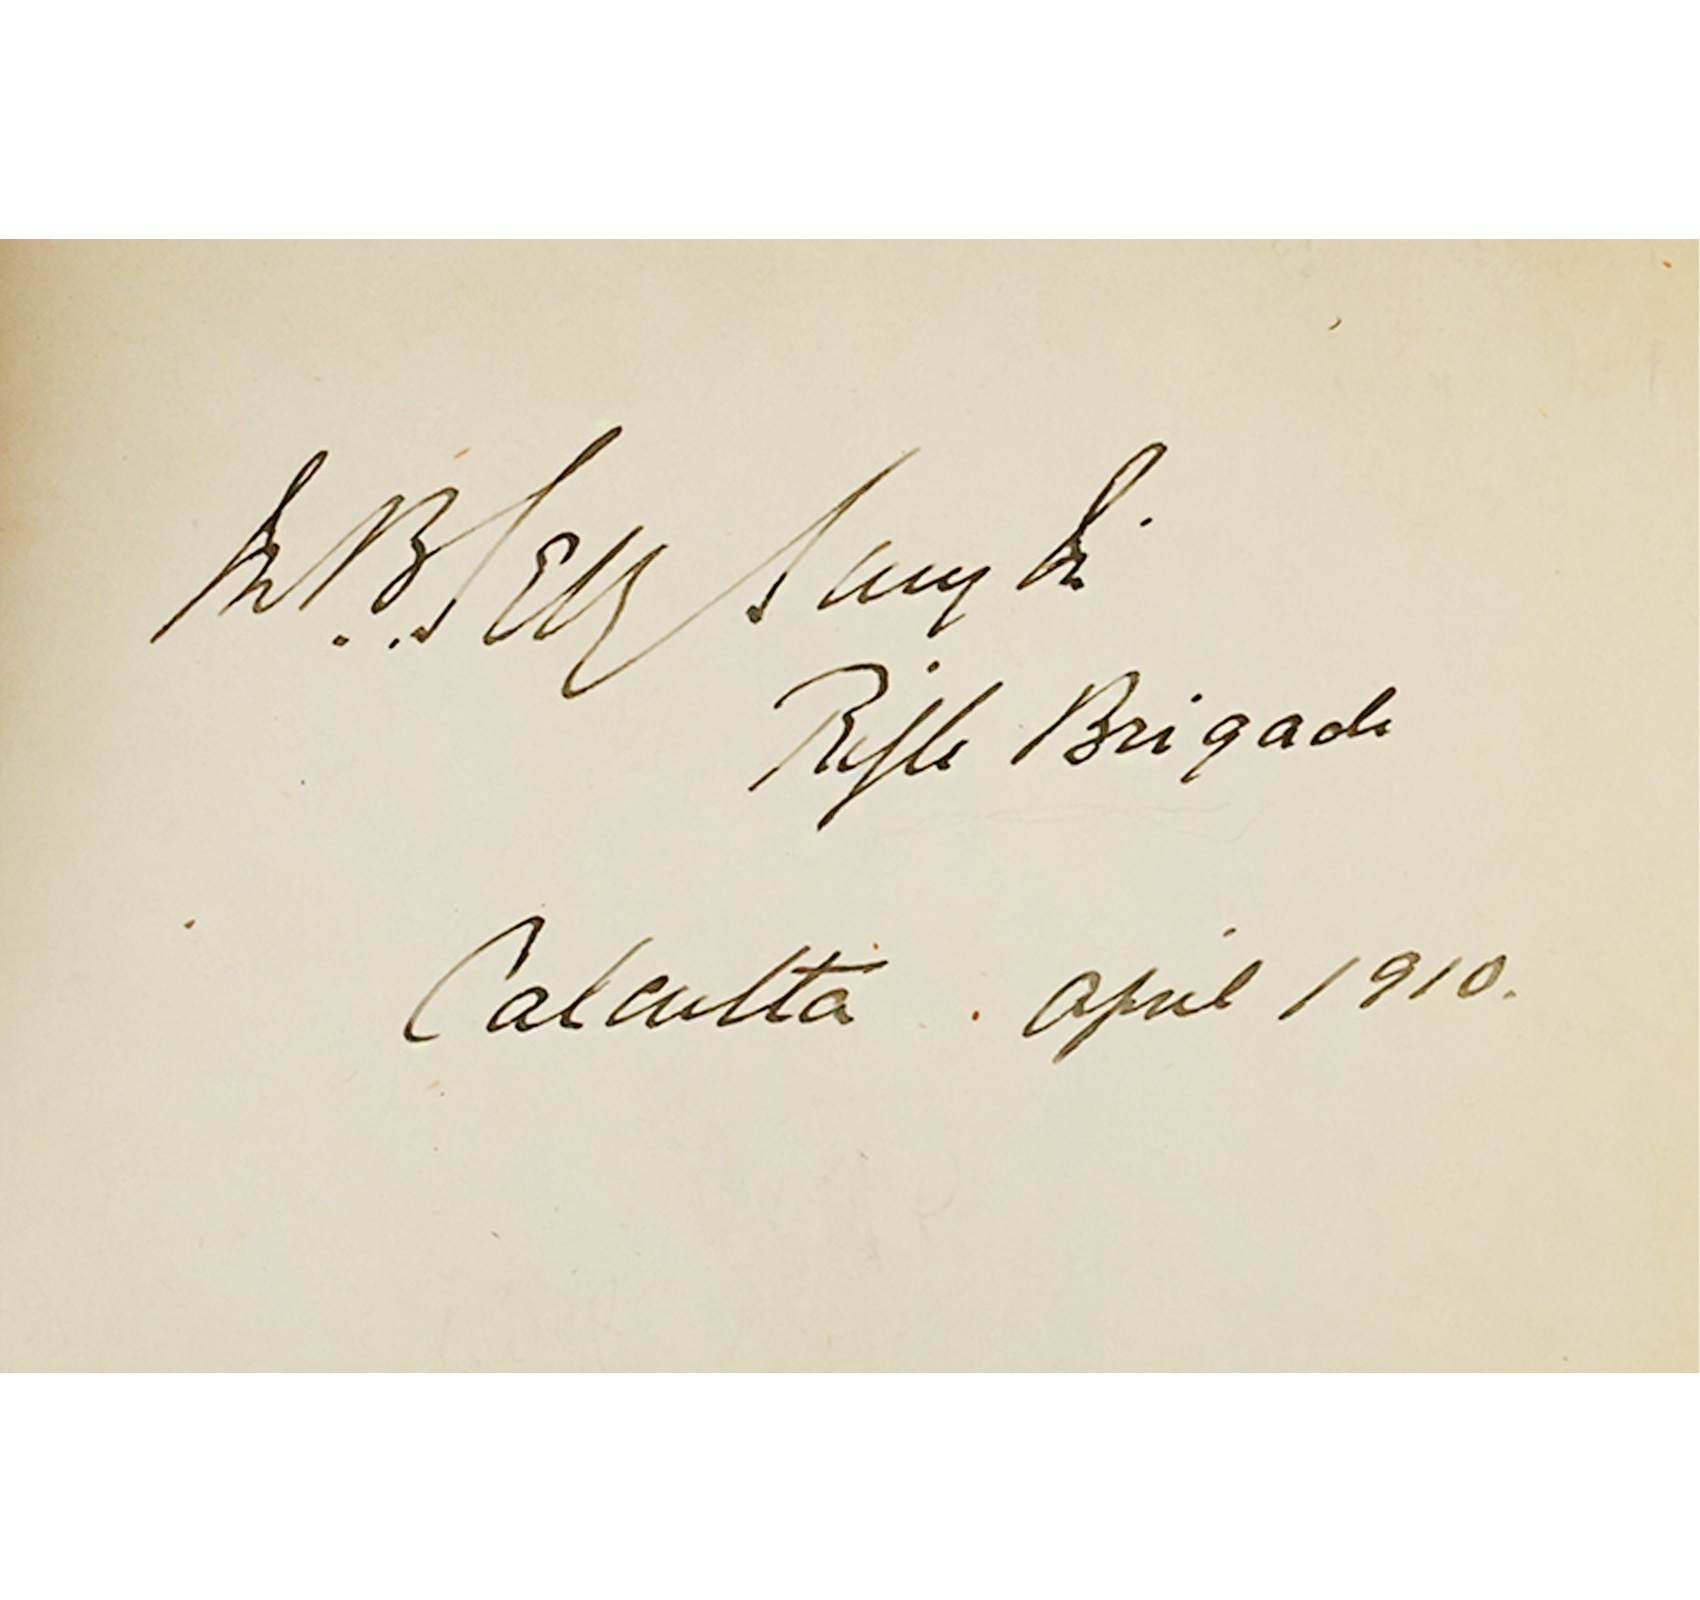 B. Selby Smyth
Rifle Brigade
Calcutta. April 1910.